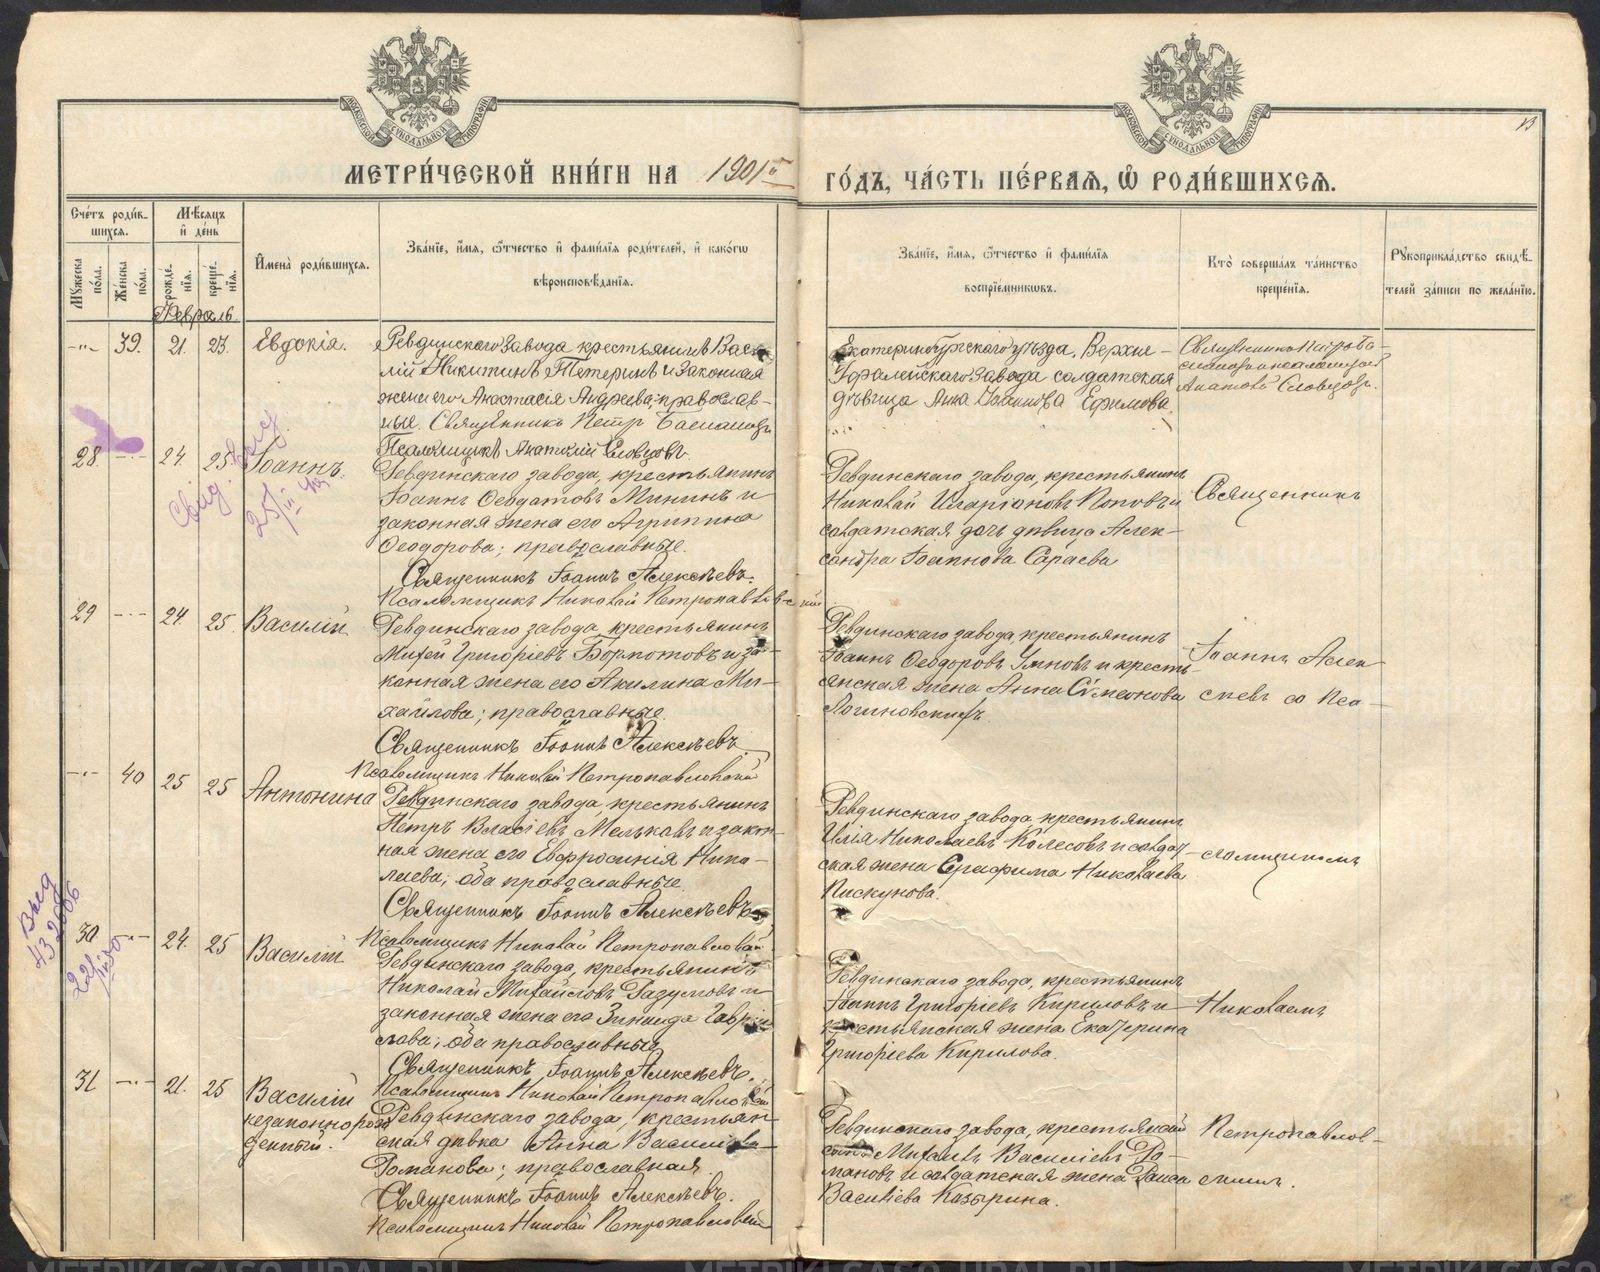 МОСКОВСКОЙ СѴНОДАЛЬНОЙ ТИПОГРАФІИ
МОСКОВСКОЙ СѴНОДАЛЬНОЙ ТИПОГРАФІИ
13
МЕТРИ́ЧЕСКОЙ КНИ́ГИ НА 1901й
ГО́ДЪ, ЧА́СТЬ ПЕ́РВАѦ, Ѽ РОДИ́ВШИХСѦ.
Сче́тъ роди́в-
шихсѧ.
Мѣсѧцъ
и҆ де́нь
Мꙋ́жеска по́ла.
Же́нска по́ла.
рожде́-нїѧ.
креще́-нїѧ.
И҆мена̀ роди́вшихсѧ.
Зва́нїе, и҆́мѧ, ѻ҆́тчество и҆ фами́лїѧ роди́телей, и҆ како́гѡ
вѣроисповѣ́данїѧ.
Зва́нїе, и҆́мѧ, ѻ҆́тчество и҆ фами́лїѧ
воспрїе́мникѡвъ.
Кто̀ соверша́лъ та́инство
креще́нїѧ.
Рꙋкоприкла́дство свидѣ́-
телей за́писи по жела́нїю.
Февраль.
39. 21. 23. Евдокія.
Ревдинскаго Завода крестьянинъ Васи-
лій Никитинъ Тетеринъ и законная
жена его Анастасія Андреева, православ-
ные. Священникъ Петръ
Псаломщикъ Анатолій Словцовъ.
Екатеринбургскаго уѣзда, Верхне-
Уфалейскаго Завода солдатская
дѣвица Анна Іоаннова Ефимова.
Священникъ Петръ Ба-
псаломщикомъ
Анатол. Словцовъ.
28. 24. 25. Іоаннъ.
Свид.
25/III
Ревдинскаго завода, крестьянинъ
Іоаннъ Ѳеодатовъ Мининъ и
законная жена его Агрипина
Ѳеодорова; православные.
Священникъ Іоаннъ Алексѣевъ.
Псаломщикъ Николай Петропавловскій
Ревдинскаго завода, крестьянинъ
Николай Иларіоновъ Поповъ и
солдатская дочь дѣвица Алек-
сандра Іоаннова Сараева
Священникъ
29 24. 25. Василій
Ревдинскаго завода, крестьянинъ
Михей Григоріевъ Бормотовъ и за-
конная жена его Акилина Ми-
хайлова; православные.
Священникъ Іоаннъ Алексѣевъ.
Псаломщикъ Николай Петропавловскій
Ревдинскаго завода, крестьянинъ
Іоаннъ Ѳеодоровъ Умновъ и кресть-
янская жена Анна Сѵмеонова
Логиновскихъ
Іоаннъ Алек-
сѣевъ со пса-
40 25 25 Антонина
Ревдинскаго завода, крестьянинъ
Петръ Власіевъ Мельковъ и закон-
ная жена его Евфросинія Нико-
лаева; оба православные.
Священникъ Іоаннъ Алексѣевъ
Псаломщикъ Николай Петропавловскій
Ревдинскаго завода, крестьянинъ
Илія Николаевъ Колесовъ и солдат-
ская жена Серафима Николаева
Пискунова.
ломщикомъ
30 24. 25 Василій
Выд
43 2086
Ревдинскаго завода, крестьянинъ
Николай Михайловъ Разумовъ и
законная жена его Зинаида Гаврі-
лова; оба православные
Священникъ Іоаннъ Алексѣевъ.
Псаломщикъ Николай Петропавловскій
Ревдинскаго завода, крестьянинъ
Іоаннъ Григоріевъ Кириловъ и
крестьянская жена Екатерина
Григоріева Кирилова.
Николаемъ
31 21. 25 Василій
незаконнорож-
денный.
Ревдинскаго завода, крестьян-
ская дѣвка Анна Василіева
Романова; православная.
Священникъ Іоаннъ Алексѣевъ.
Псаломщикъ Николай Петропавловскій
Ревдинскаго завода, крестьянскій
сынъ Михаилъ Василіевъ Ро-
мановъ и солдатская жена Раиса
Василіева Козырина.
Петропавлов-
скимъ.
METRIKI.GASO-URAL.RU